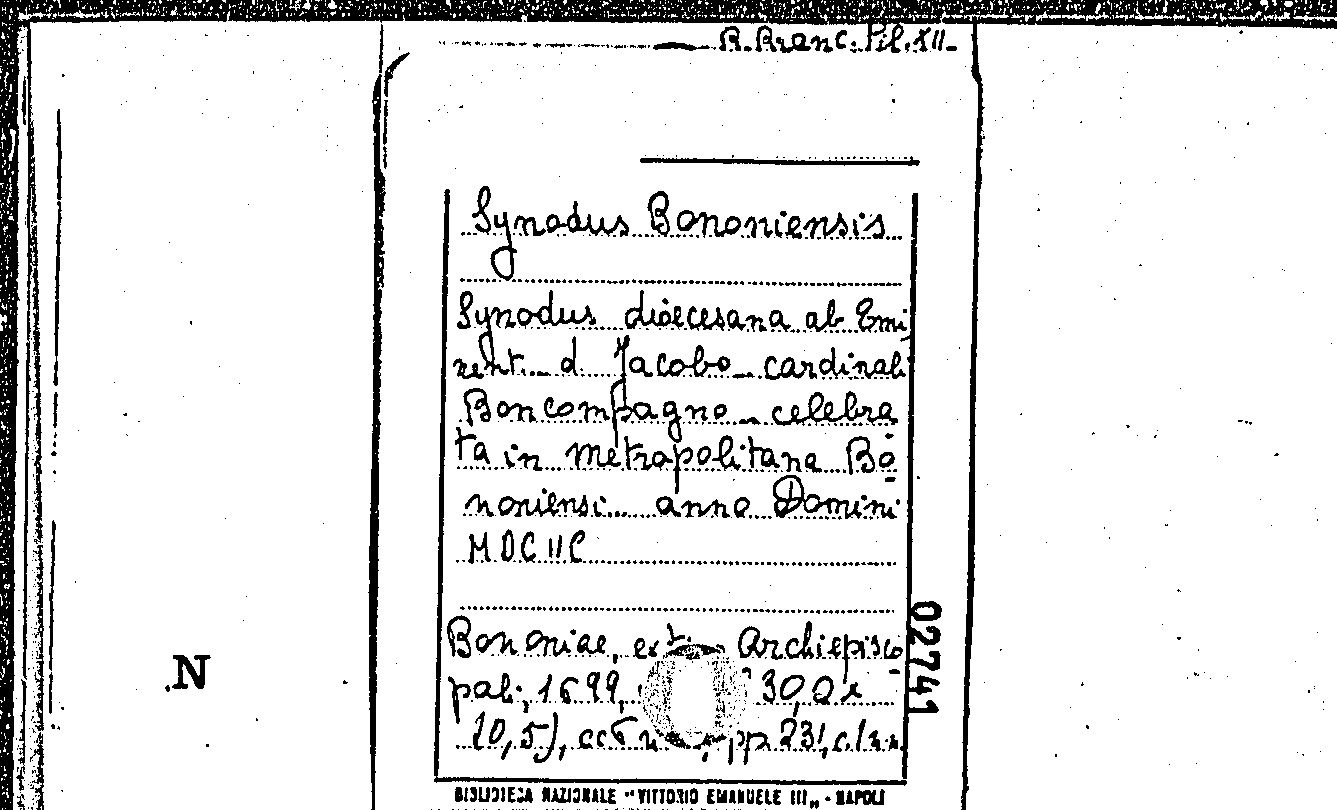 B. Branc. Fil. XII.
Synodus Bononiensis
Synodus dioecesana ab Emi
nent. d. Jacobo cardinali
Boncompagno celebra
ta in metropolitana Bo
noniensi anno Domini
MDCIIC
Bononiae, Archiepisco
pali, 1699, 30,0x
10,5), pp 231,
BIBLIOTECA NAZIONALE "VITTORIO EMANUELE III" - NAPOLI
02741
N